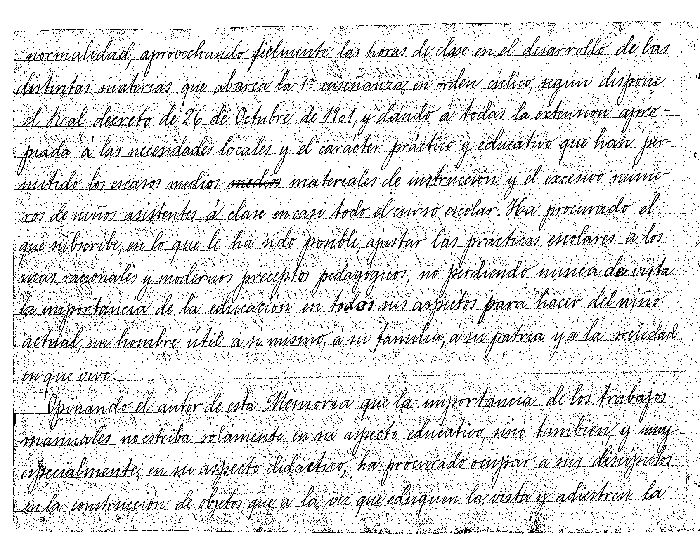 normalidad, aprovechando fielmente las horas de clase en el desarrollo de las
distintas materias que abarca la 1ª enseñanza en orden cíclico, según dispone
el Real decreto de 26 de Octubre de 1901, y dando a todas la extensión apro-
piada á las necesidades locales y el carácter práctico y educativo que han per-
mitido los escasos medios medios materiales de instrucción y el excesivo núme-
ros de niños asistentes á clase en casi todo el curso escolar. Ha procurado el
que subscribe, en lo que le ha sido posible, ajustar las prácticas escolares a los
mas racionales y modernos preceptos pedagógicos, no perdiendo nunca de vista
la importancia de la educación en todos sus aspectos para hacer del niño
actual, un hombre útil a si mismo, a su familia, a su patria y a la sociedad
en que vive.
Opinando el autor de esta Memoria que la importancia de los trabajos
manuales no estriba solamente en su aspecto educativo, sino también y muy
especialmente, en su aspecto didáctico, ha procurado ocupar a sus discípulos
en la construcción de objetos que a la vez que eduquen la vista y adiestren la